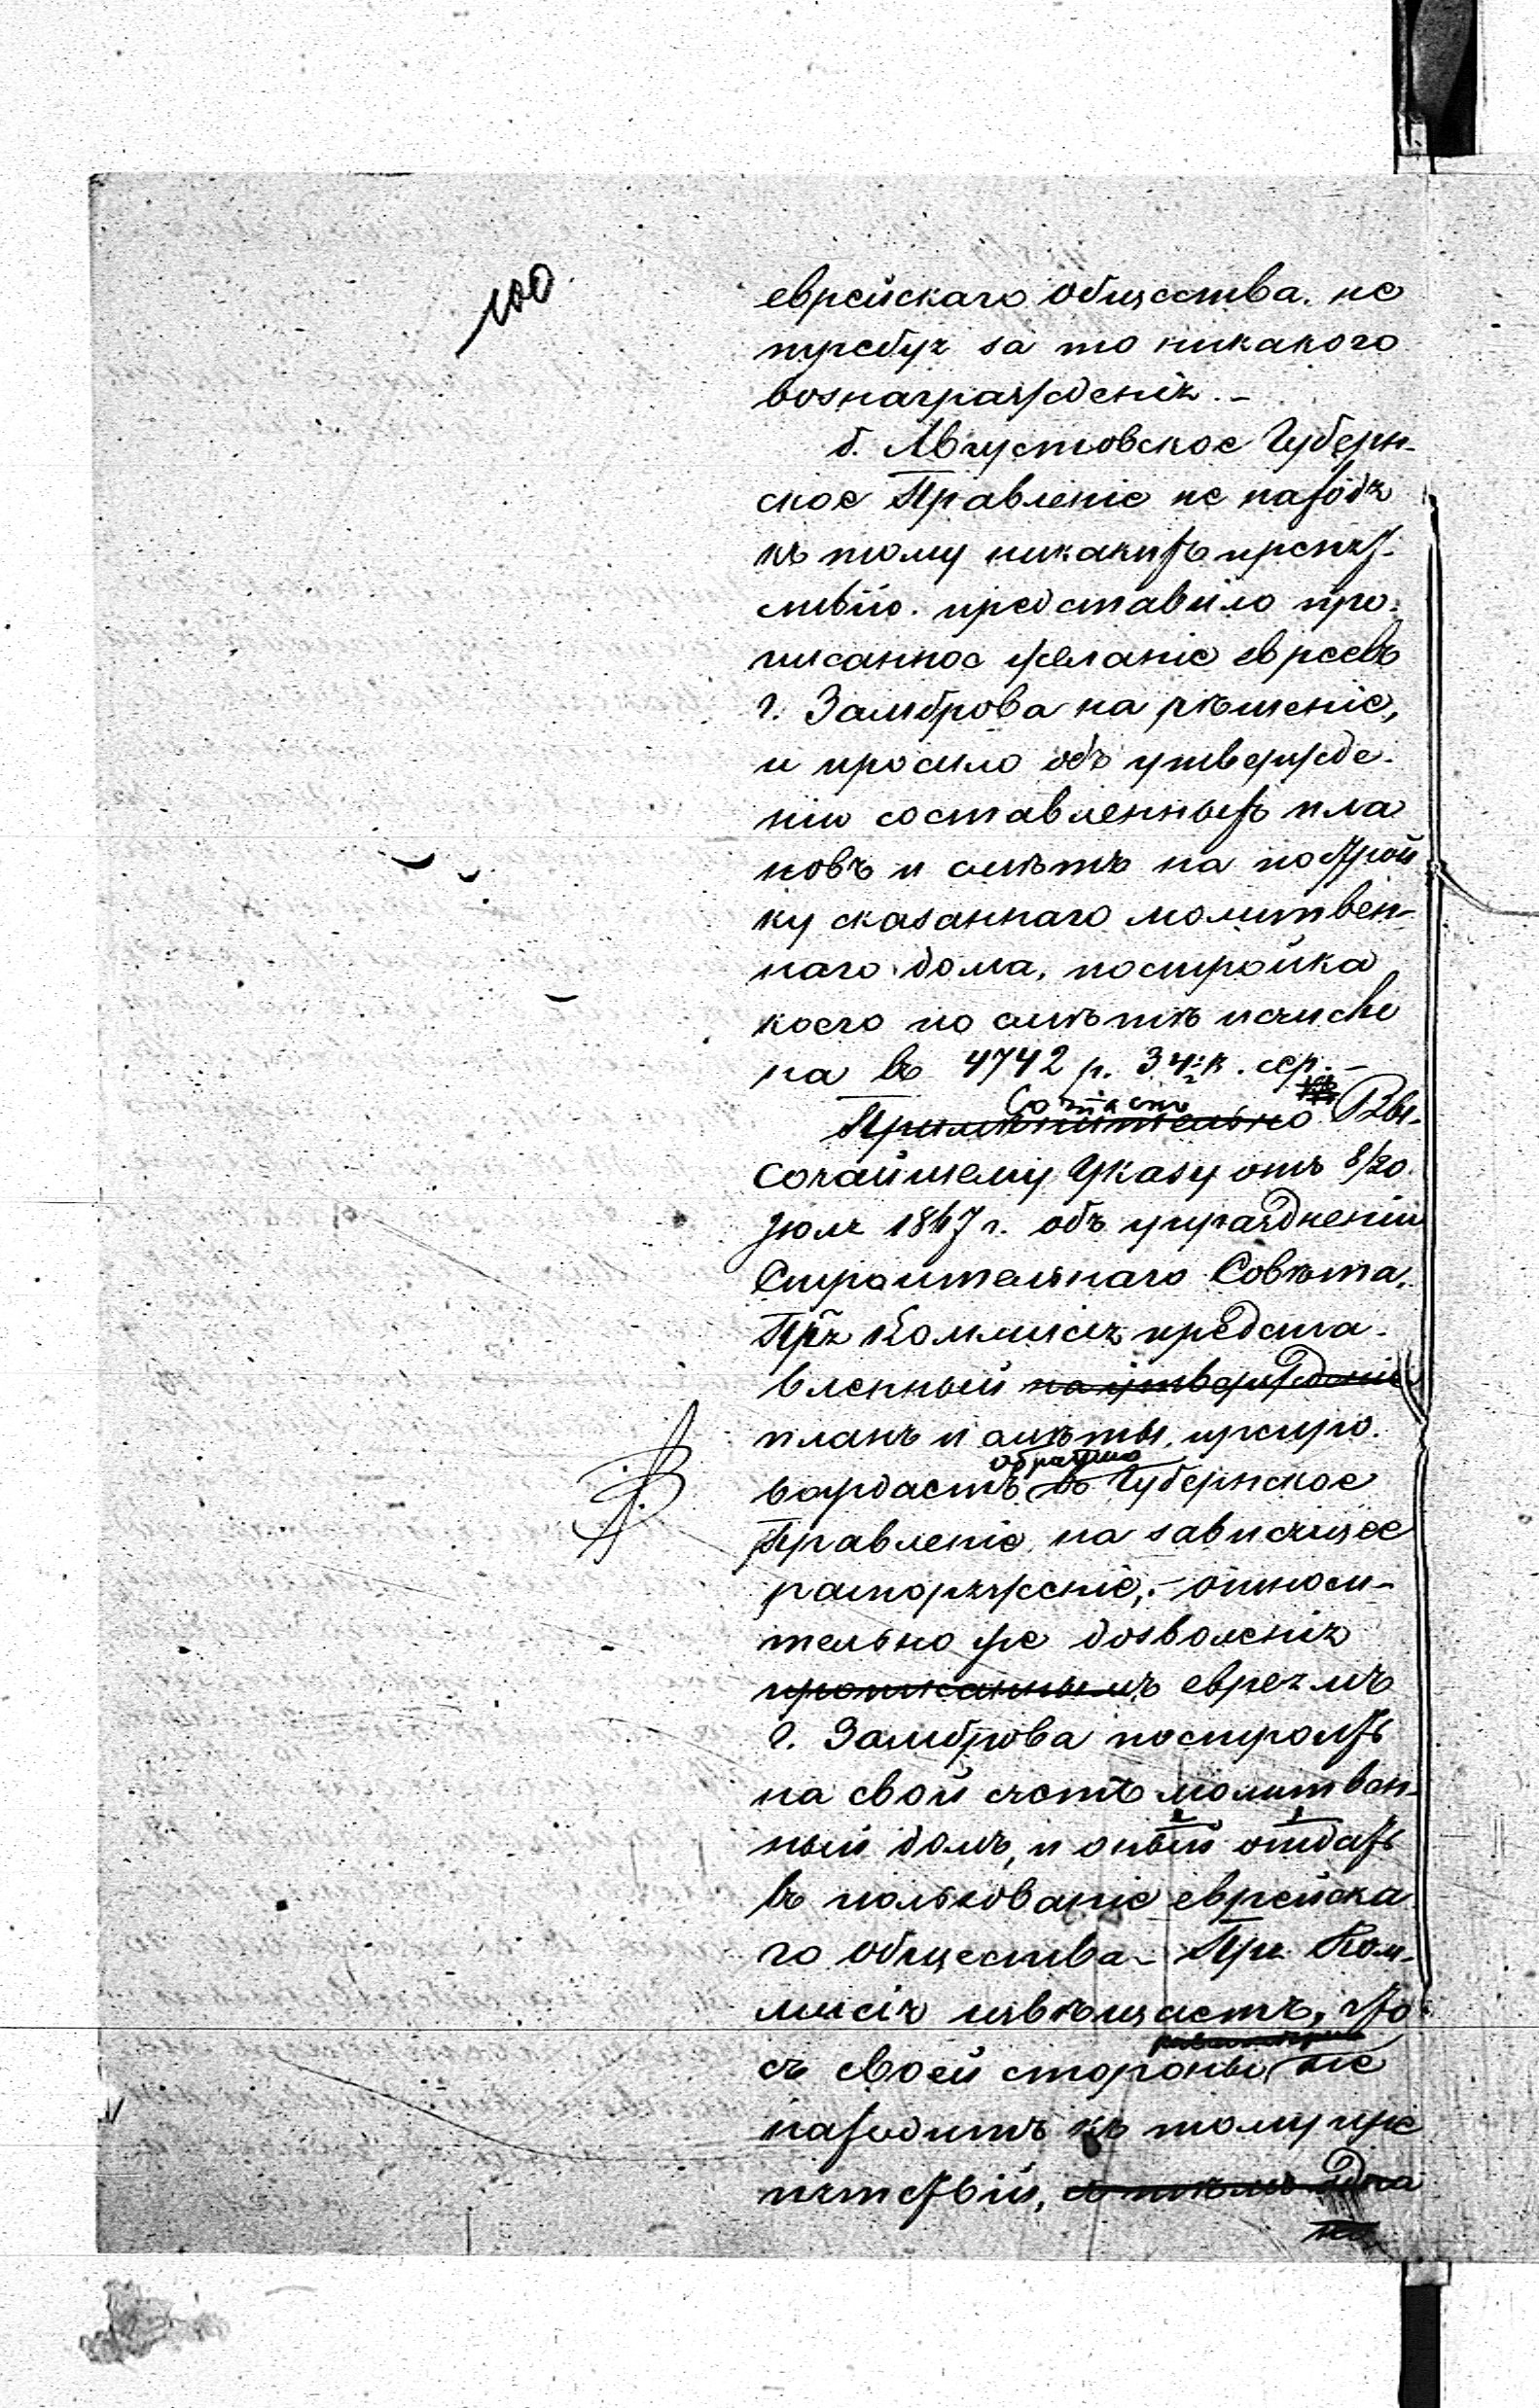 100
еврейскаго общества. не
требуя за то никакого
вознагражденія. –
б. Августовское Губерн-
ское Правленіе не находя
къ тому никакихъ препят-
ствій. представило про-
писанное желаніе евреевъ
г. Замброва на рѣшеніе,
и просило объ утвержде-
ніи составленныхъ пла
новъ и смѣтъ на построй
ку сказаннаго молитвен-
наго дома, постройка
коего по смѣтѣ исчисле
на въ 4742 р. 34½ к. сер. –
Согласно
Примѣнительно Вы-
сочайшему Указу отъ 8/20
Іюля 1847 г. объ упраздненіи
Строительнаго Совѣта,
Пр. Коммисія представ-
вленный на утвержденіе
планъ и смѣты, препро-
обратно
вождаетъ въ Губернское
Правленіе на зависящее
распоряженіе, – относи-
тельно же дозволенія
прописаннымъ евреямъ
г. Замброва построить
на свой счетъ молитвен-
ный домъ, и оный отдать
въ пользованіе еврейска
го общества – Пр. Ком-
мисія извѣщаетъ, что
съ своей стороны не
находитъ къ тому пре
пятствій, съ тѣмъ